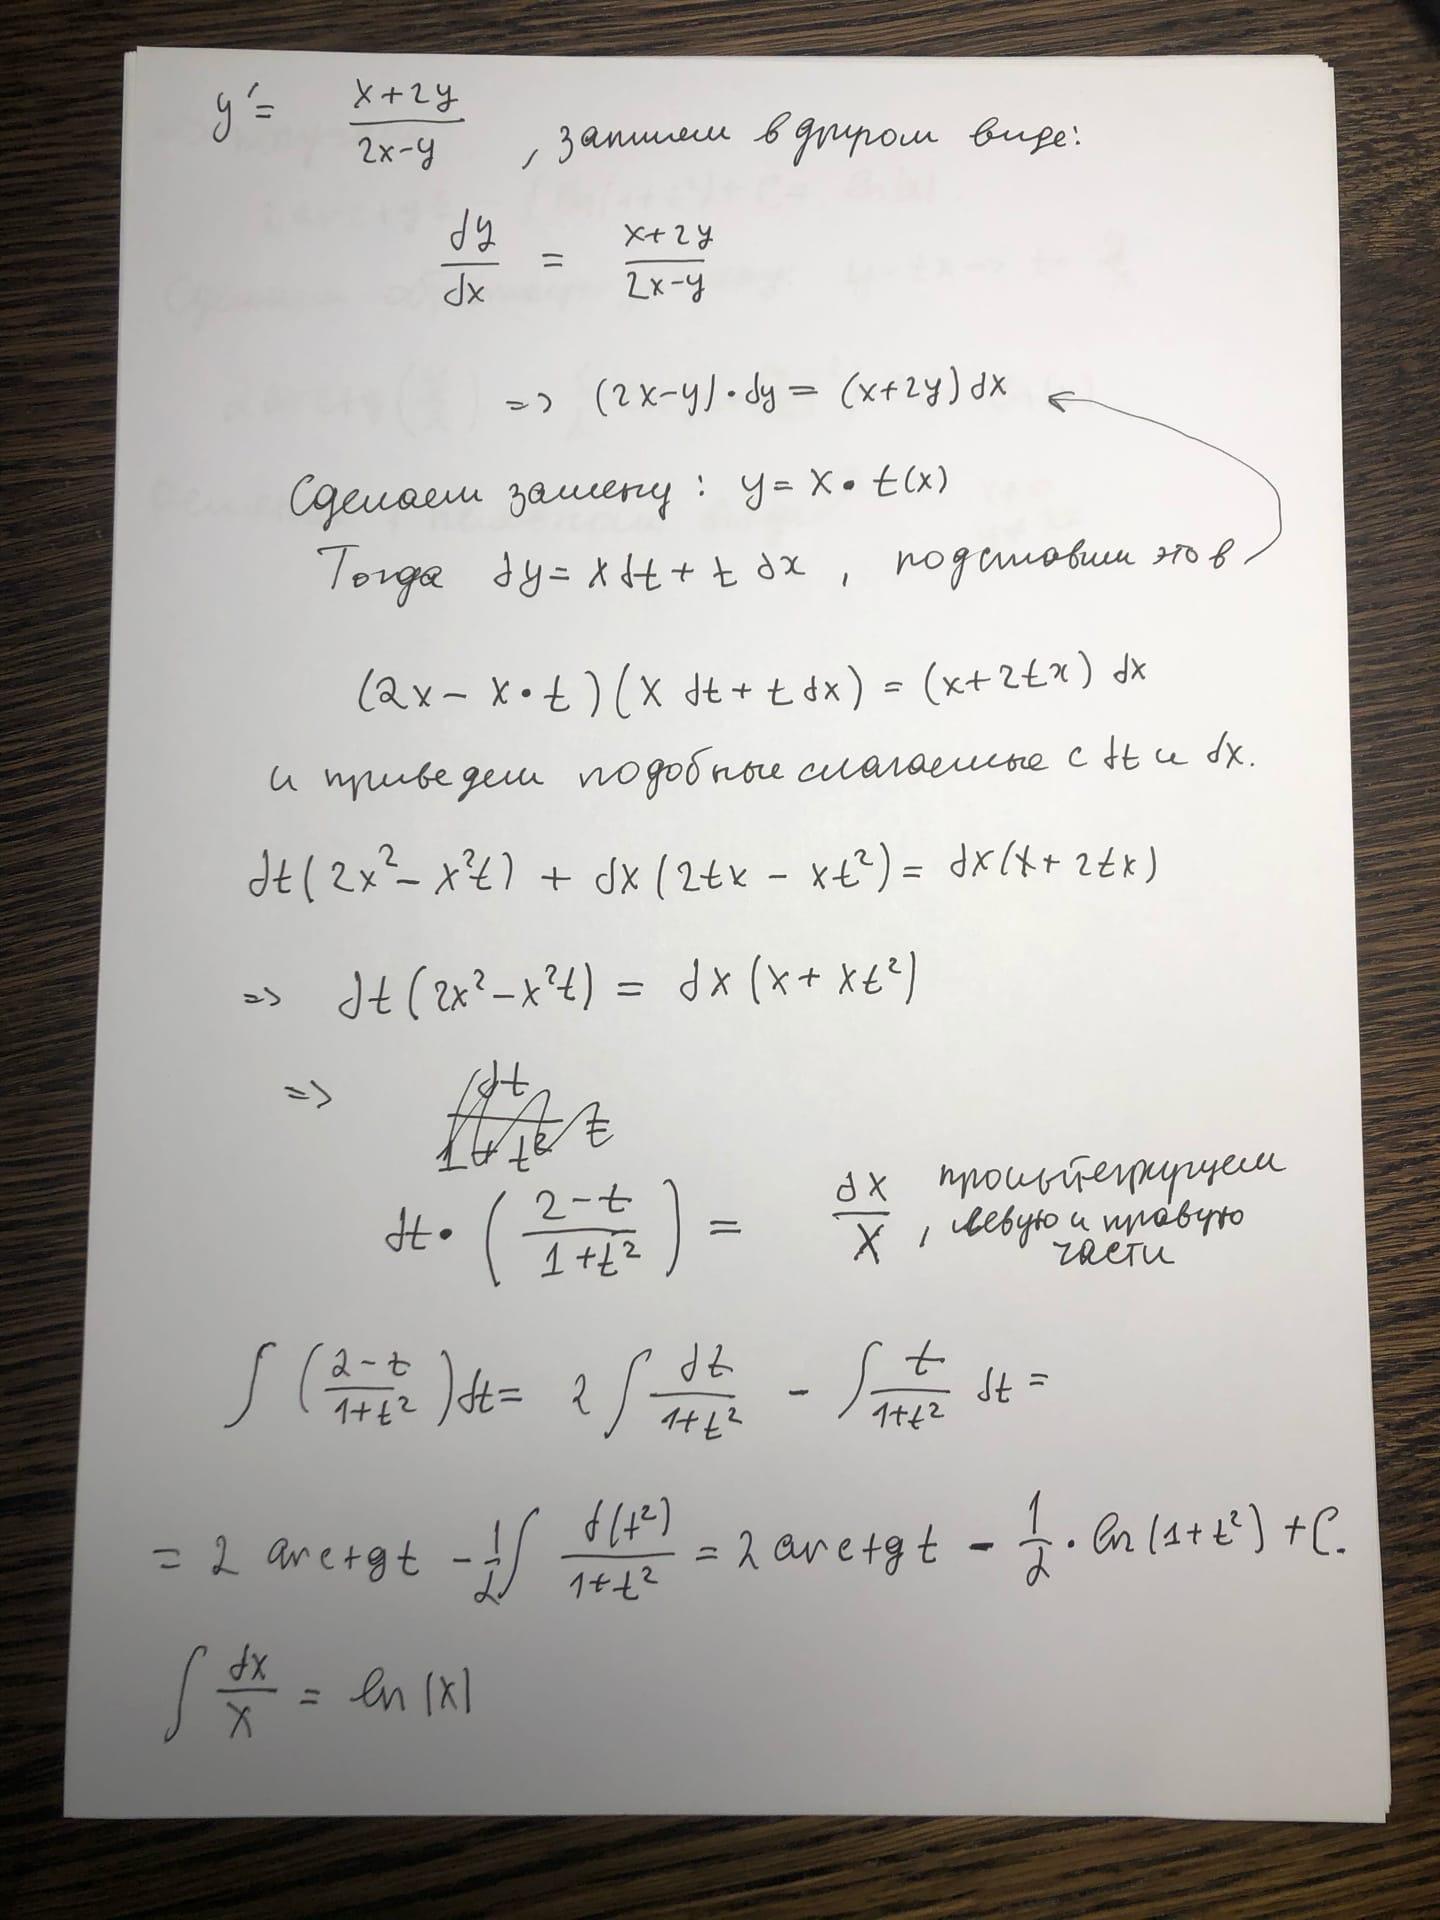 y' = (x+2y)/(2x-y) , запишем в другом виде:
dy/dx = (x+2y)/(2x-y)
=> (2x-y)·dy = (x+2y)dx
Сделаем замену: y = x·t(x)
Тогда dy = x dt + t dx , подставим это в
(2x - x·t)(x dt + t dx) = (x+2tx) dx
и приведем подобные слагаемые с dt и dx.
dt(2x² - x²t) + dx(2tx - xt²) = dx(x + 2tx)
=> dt(2x² - x²t) = dx(x + xt²)
=>
dt·((2-t)/(1+t²)) = dx/x , проинтегрируем
левую и правую
части
∫((2-t)/(1+t²))dt = 2∫dt/(1+t²) - ∫t/(1+t²) dt =
= 2 arctg t - 1/2∫d(t²)/(1+t²) = 2 arctg t - 1/2·ln(1+t²) + C.
∫dx/x = ln|x|